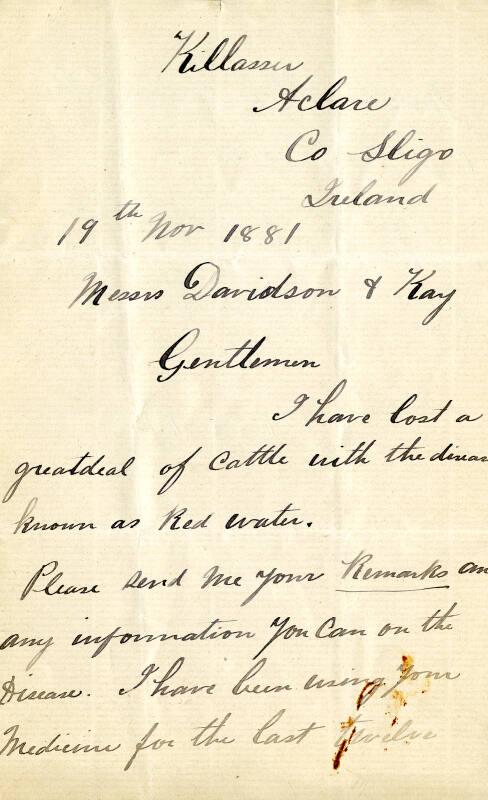 Killasser
Aclare
Co Sligo
Ireland
19th Nov 1881
Messrs Davidson & Kay
Gentlemen
I have lost a
greatdeal of cattle with the diseas
known as Red water.
Please send me your Remarks an
any information you can on the
Disease. I have been using your
Medicine for the last twelve